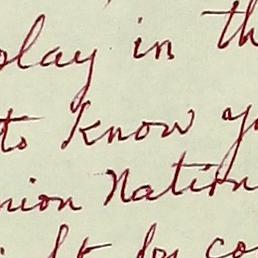 play in th
to know y
nion Nation
for co